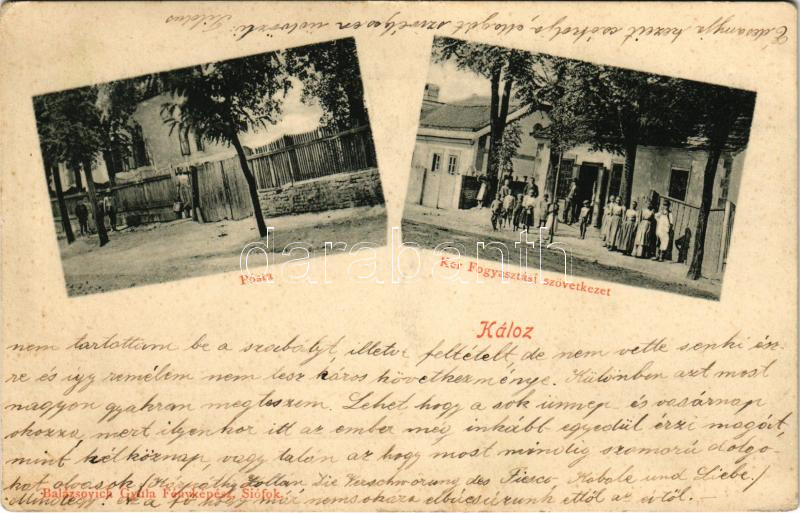 Édesanyja kezeit csókolja, elegáit szivélyesen üdvözli
Pósta
Ker Fogyasztási szövetkezet
darabanth
Káloz
nem tartottam be a szabályt, illetve feltételt de nem vette senki ész-
re és így remélem nem lesz káros következménye. Különben azt most
nagyon gyakran megteszem. Lehet hogy a sok ünnep és vasárnap
okozza, mert ilyenkor itt az ember még inkább egyedül érzi magát,
mint hétköznap, vagy talán az hogy most mindig szomorú dolgo-
kat olvasok (Kárpáthy Zoltán Die Verschwörung des Fiesco, Kabale und Liebe.)
Mindegy. Ez a fő hogy már nemsokára elbúcsúzunk ettől az évtől.
Balázsovich Gyula Fényképész, Siófok.